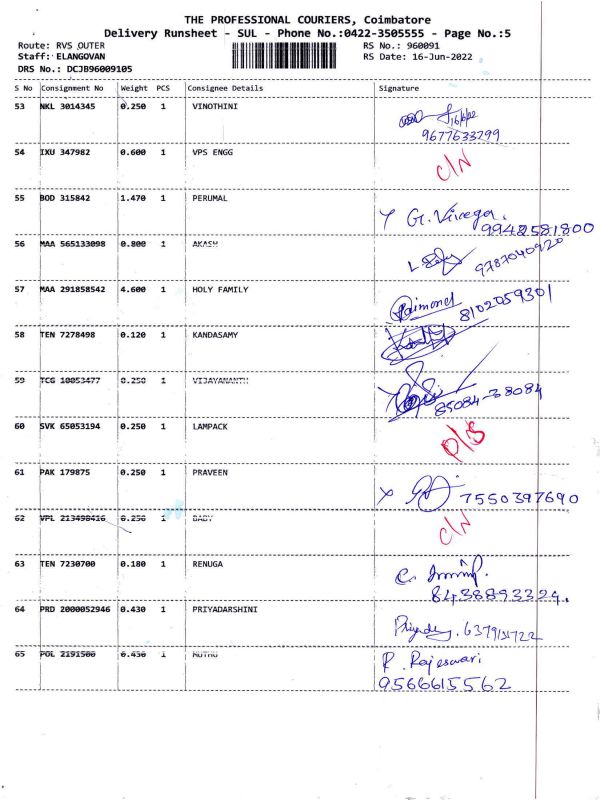 THE PROFESSIONAL COURIERS, Coimbatore
Delivery Runsheet - SUL - Phone No.:0422-3505555 - Page No.:5
Route: RVS OUTER
Staff: ELANGOVAN
DRS No.: DCJB96009105
RS No.: 960091
RS Date: 16-Jun-2022
S No Consignment No Weight PCS Consignee Details Signature
53 NKL 3014345 0.250 1 VINOTHINI
16/6/22
9677633299
54 IXU 347982 0.600 1 VPS ENGG C/N
55 BOD 315842 1.470 1 PERUMAL
G. Vivega.
9942581800
56 MAA 565133098 0.800 1 AKASH
9787040920
57 MAA 291858542 4.600 1 HOLY FAMILY
Raimond 8102059301
58 TEN 7278498 0.120 1 KANDASAMY
59 TCG 10053477 0.250 1 VIJAYAMANTH
85084-38084
60 SVK 65053194 0.250 1 LAMPACK
61 PAK 179875 0.250 1 PRAVEEN
x 7550397690
62 VPL 213498416 0.250 1 BABY C/N
63 TEN 7230700 0.180 1 RENUGA
8438893324.
64 PRD 2000052946 0.430 1 PRIYADARSHINI
65 POL 2191500 0.430 1 MUTHU
R. Rajeswari
9566615562